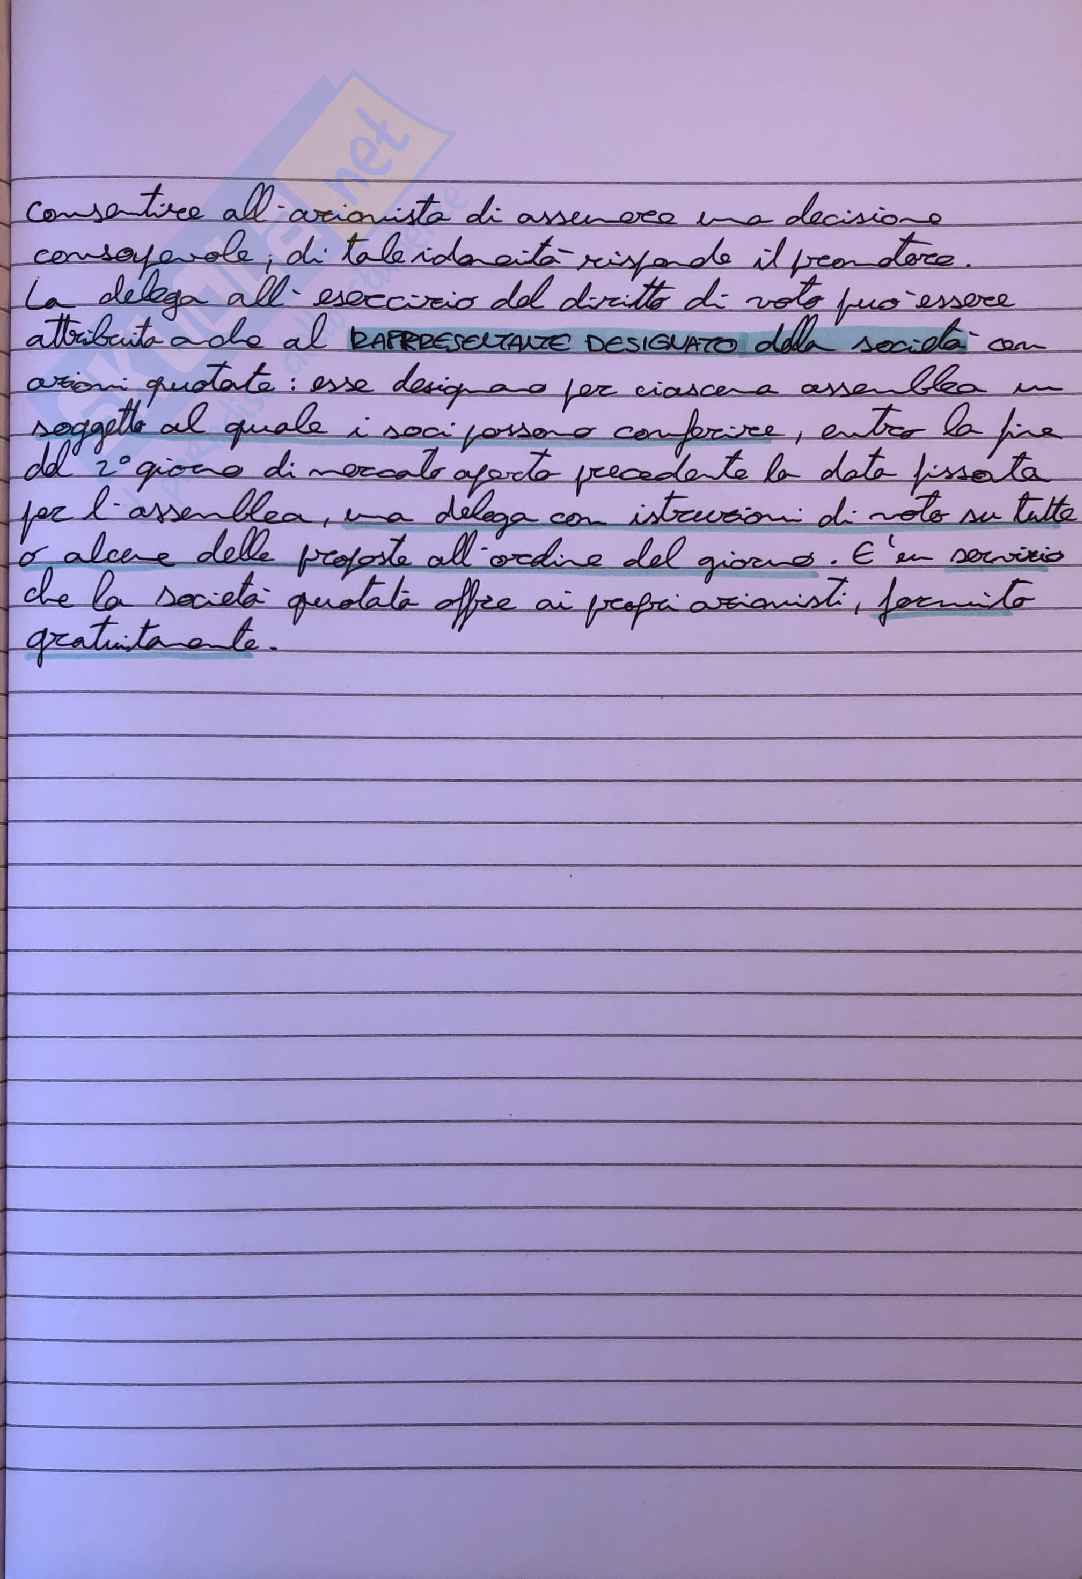 consentire all'azionista di assumere una decisione
consapevole; di tale idoneità risponde il promotore.
La delega all'esercizio del diritto di voto può essere
attribuita anche al RAPPRESENTANTE DESIGNATO della società con
azioni quotate: esse designano per ciascuna assemblea un
soggetto al quale i soci possono conferire, entro la fine
del 2° giorno di mercato aperto precedente la data fissata
per l'assemblea, una delega con istruzioni di voto su tutte
o alcune delle proposte all'ordine del giorno. E' un servizio
che la società quotata offre ai propri azionisti, fornito
gratuitamente.
SKUOLA.net